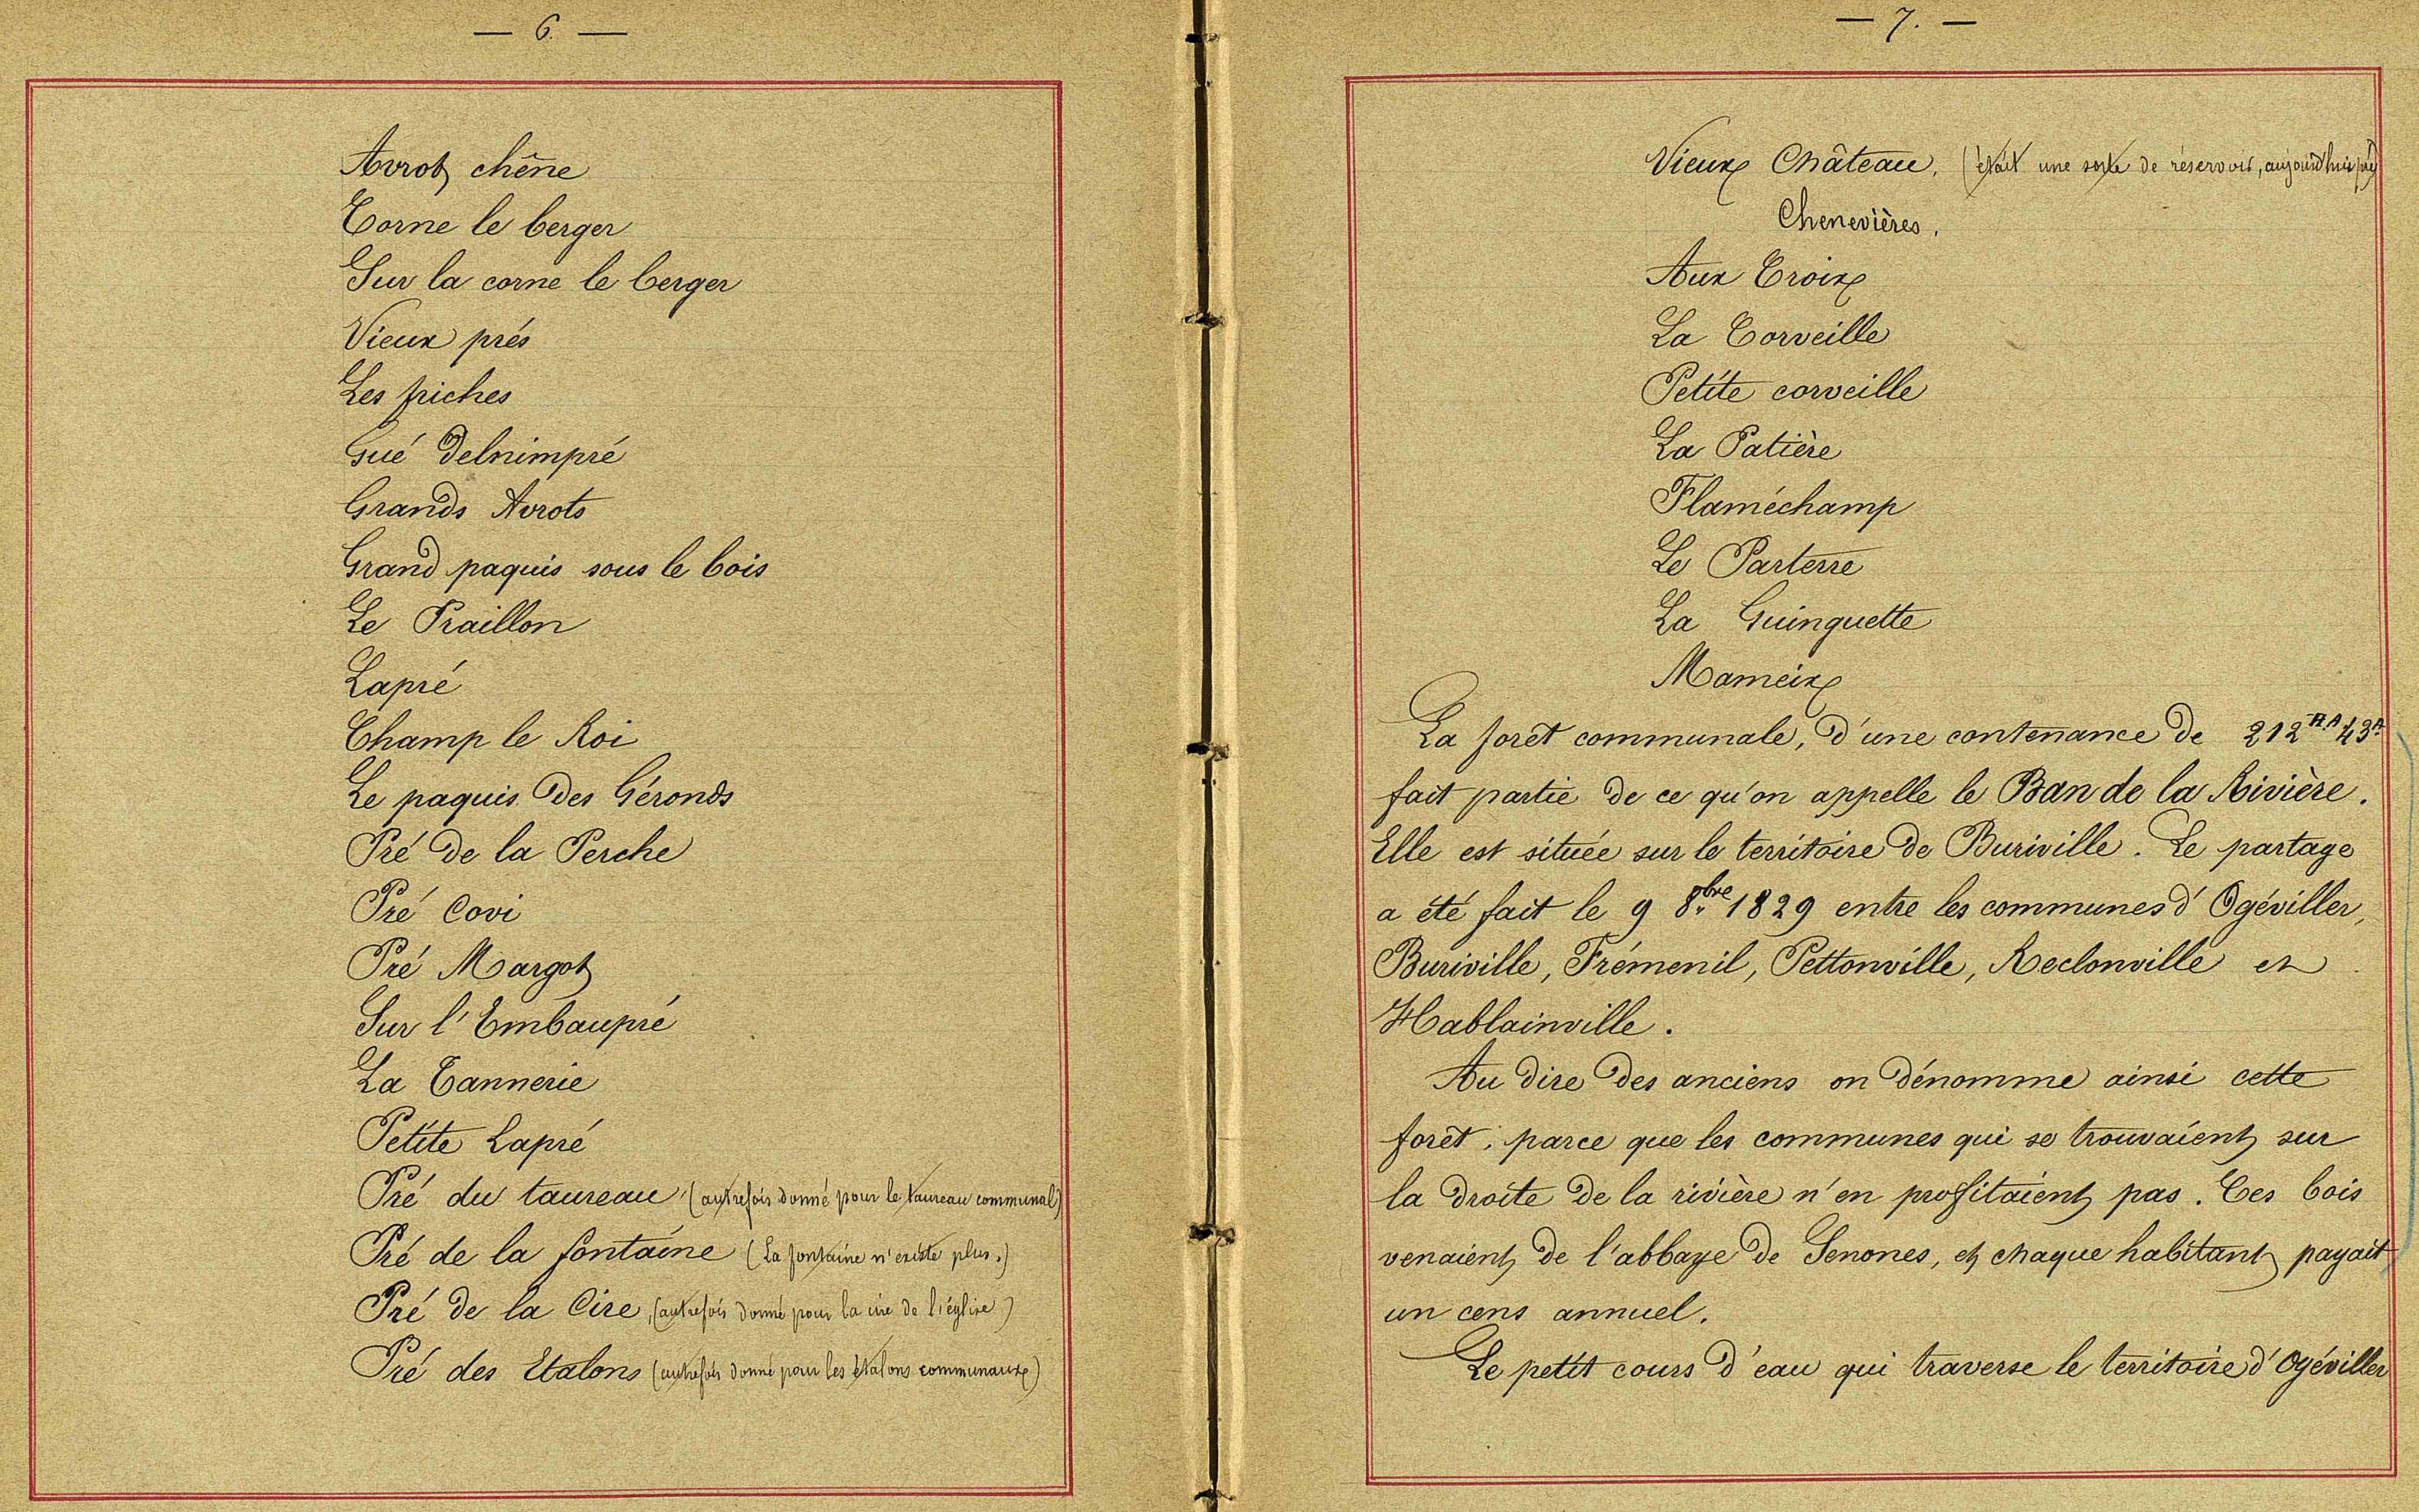 — 6. —
Avrot chêne
Corne le berger
Sur la corne le berger
Vieux prés
Les friches
Gué Delnimpré
Grands Avrots
Grand paquis sous le bois
Le Praillon
Lapré
Champ le Roi
Le paquis des Géronds
Pré de la Perche
Pré Covi
Pré Margot
Sur l'Embaupré
La Tannerie
Petite Lapré
Pré du taureau (autrefois donné pour le taureau communal)
Pré de la fontaine (La fontaine n'existe plus.)
Pré de la Cire, (autrefois donné pour la cire de l'église)
Pré des Etalons (autrefois donné pour les étalons communaux)
— 7. —
Vieux Château, (était une sorte de réservoir, aujourd'hui pré)
Chenevières.
Aux Croix
La Corveille
Petite corveille
La Patière
Flaméchamp
Le Parterre
La Guinguette
Mameix
La forêt communale, d'une contenance de 212HA 43A
fait partie de ce qu'on appelle le Ban de la Rivière.
Elle est située sur le territoire de Buriville. Le partage
a été fait le 9 8bre 1829 entre les communes d'Ogéviller,
Buriville, Frémenil, Pettonville, Reclonville et
Hablainville.
Au dire des anciens on dénomme ainsi cette
forêt, parce que les communes qui se trouvaient sur
la droite de la rivière n'en profitaient pas. Ces bois
venaient de l'abbaye de Senones, et chaque habitant payait
un cens annuel.
Le petit cours d'eau qui traverse le territoire d'Ogéviller